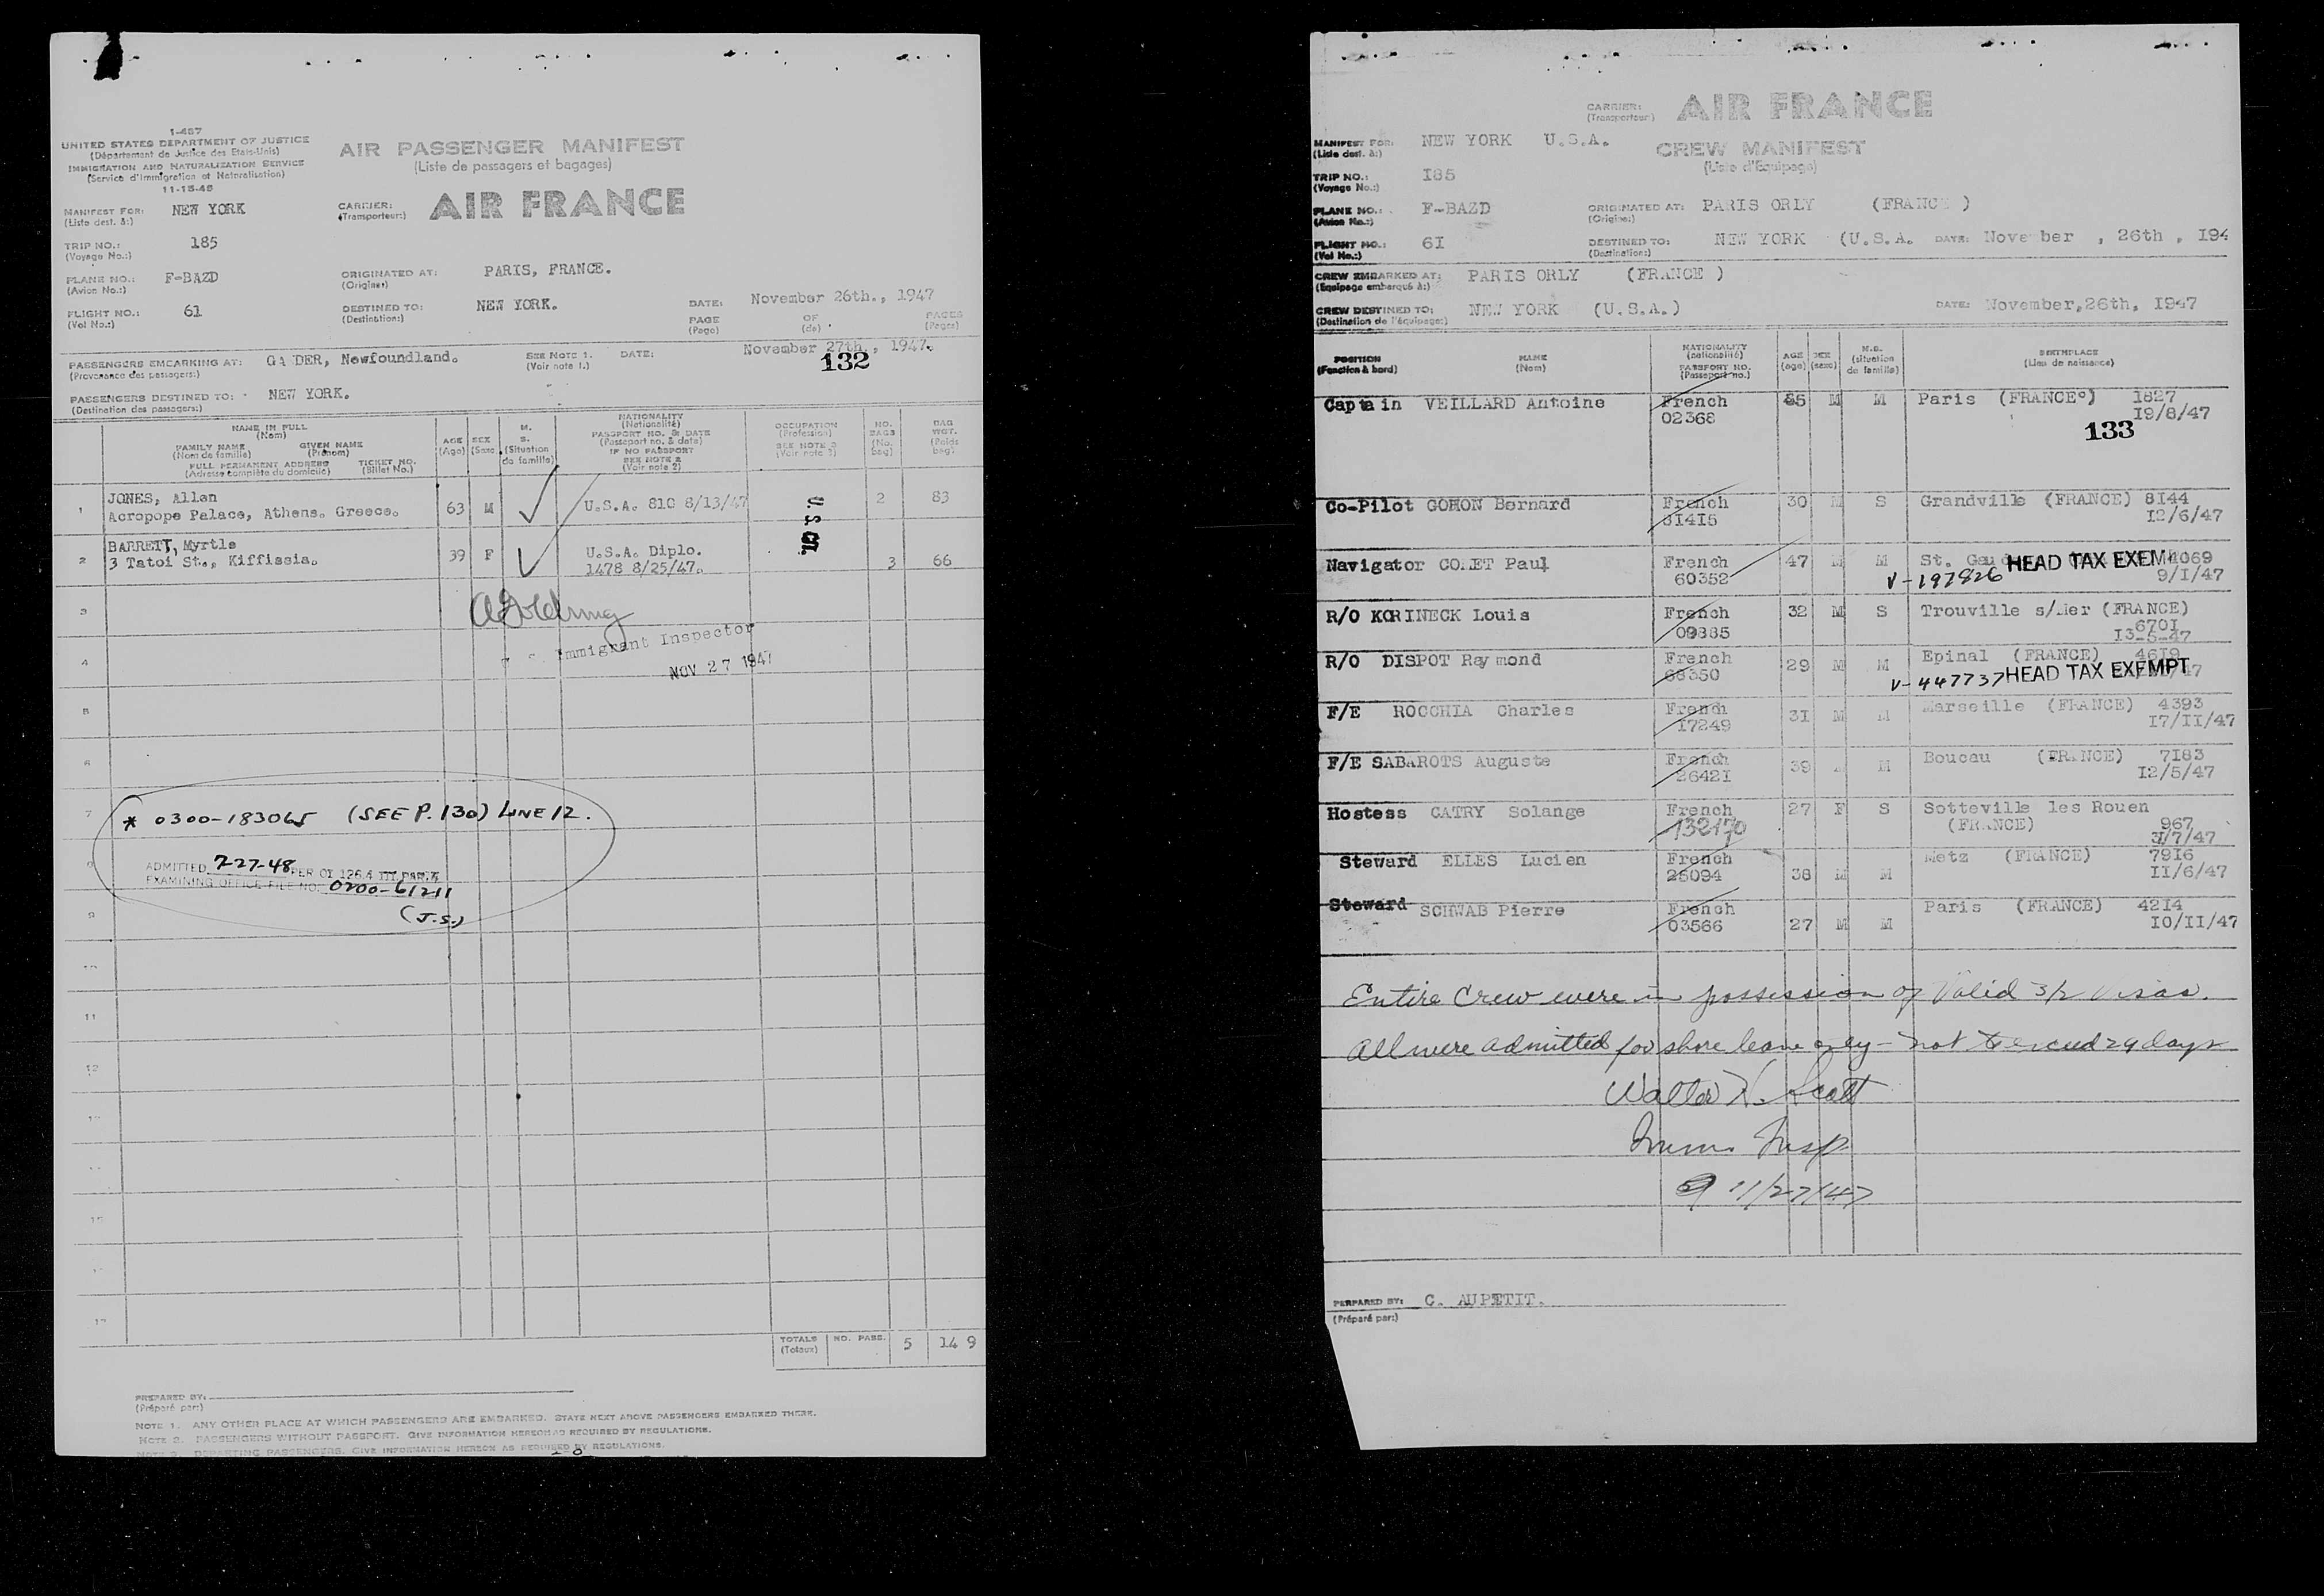 1-487
UNITED STATES DEPARTMENT OF JUSTICE
(Département de Justice des Etats-Unis)
IMMIGRATION AND NATURALIZATION SERVICE
(Service d'Immigration et Naturalisation)
11-15-46
AIR PASSENGER MANIFEST
(Liste de passagers et bagages)
MANIFEST FOR: NEW YORK
(Liste dest. à:)
CARRIER: AIR FRANCE
(Transporteur:)
TRIP NO.: 185
(Voyage No.:)
PLANE NO.: F-BAZD
(Avion No.:)
ORIGINATED AT: PARIS, FRANCE.
(Origine:)
FLIGHT NO.: 61
(Vol No.:)
DESTINED TO: NEW YORK.
(Destination:)
DATE: November 26th., 1947
PAGE OF PAGES
(Page) (de) (Pages)
PASSENGERS EMBARKING AT: GA DER, Newfoundland.
(Provenance des passagers:)
SEE NOTE 1. DATE: November 27th., 1947.
(Voir note 1.)
132
PASSENGERS DESTINED TO: NEW YORK.
(Destination des passagers:)
NAME IN FULL
(Nom)
FAMILY NAME GIVEN NAME
(Nom de famille) (Prénom)
FULL PERMANENT ADDRESS TICKET NO.
(Adresse complète du domicile) (Billet No.)
AGE
(Age)
SEX
(Sexe)
M.
S.
(Situation
de famille)
NATIONALITY
(Nationalité)
PASSPORT NO. & DATE
(Passeport no. & date)
IF NO PASSPORT
SEE NOTE 2
(Voir note 2)
OCCUPATION
(Profession)
SEE NOTE 3
(Voir note 3)
NO.
BAGS
(No.
bag)
BAG
WGT.
(Poids
bag)
1 JONES, Allen 63 M U.S.A. 810 8/13/47 2 83
Acropope Palace, Athens. Greece.
2 BARRETT, Myrtle 39 F U.S.A. Diplo. 3 66
3 Tatoi St., Kiffissia. 1478 8/25/47.
U.S. Cit.
3
4
5
6
7
9
10
11
12
AGoldring
U. S. Immigrant Inspector
NOV 27 1947
* 0300-183065 (SEE P. 130) LINE 12.
ADMITTED 7-27-48 PER OI 126.4
EXAMINING OFFICE FILE NO. 0200-61211
(J.S.)
TOTALS NO. PASS. 5 14 9
(Totaux)
PREPARED BY:
(Préparé par:)
NOTE 1. ANY OTHER PLACE AT WHICH PASSENGERS ARE EMBARKED. STATE NEXT ABOVE PASSENGERS EMBARKED THERE.
NOTE 2. PASSENGERS WITHOUT PASSPORT. GIVE INFORMATION HEREON AS REQUIRED BY REGULATIONS.
NOTE 3. DEPARTING PASSENGERS. GIVE INFORMATION HEREON AS REQUIRED BY REGULATIONS.
CARRIER: AIR FRANCE
(Transporteur)
MANIFEST FOR: NEW YORK U.S.A.
(Liste dest. à:)
CREW MANIFEST
(Liste d'Equipage)
TRIP NO.: I85
(Voyage No.:)
PLANE NO.: F-BAZD
(Avion No.:)
ORIGINATED AT: PARIS ORLY (FRANC )
(Origine:)
FLIGHT NO.: 6I
(Vol No.:)
DESTINED TO: NEW YORK (U.S.A. DATE: Nove ber , 26th , I94
(Destination:)
CREW EMBARKED AT: PARIS ORLY (FRANCE )
(Equipage embarqué à:)
CREW DESTINED TO: NEW YORK (U.S.A.) DATE: November,26th, I947
(Destination de l'équipage:)
POSITION
(Fonction à bord)
NAME
(Nom)
NATIONALITY
(nationalité)
PASSPORT NO.
(Passeport no.)
AGE
(age)
SEX
(sexe)
M.S.
(situation
de famille)
BIRTHPLACE
(Lieu de naissance)
Captain VEILLARD Antoine French M M Paris (FRANCE°) I827
02368 I9/8/47
133
Co-Pilot GOHON Bernard French 30 M S Grandville (FRANCE) 8I44
31415 I2/6/47
Navigator COMET Paul French 47 M M St. Gaud HEAD TAX EXEM 4069
60352 V-197826 9/I/47
R/O KORINECK Louis French 32 M S Trouville s/Mer (FRANCE)
09385 670I
I3-5-47
R/O DISPOT Raymond French 29 M M Epinal (FRANCE) 46I9
68350 V-447737 HEAD TAX EXEMPT
F/E ROCCHIA Charles French 3I M M Marseille (FRANCE) 4393
I7249 I7/II/47
F/E SABAROTS Auguste French 39 M Boucau (FRANCE) 7I83
2642I I2/5/47
Hostess CATRY Solange French 27 F S Sotteville les Rouen
132170 (FRANCE) 967
3I/7/47
Steward ELLES Lucien French 38 M M Metz (FRANCE) 79I6
25094 II/6/47
Steward SCHWAB Pierre French 27 M M Paris (FRANCE) 42I4
03566 I0/II/47
Entire Crew were in possession of Valid 3/2 Visas.
All were admitted for shore leave only - not to exceed 29 days
Walter X. Scott
Immn Insp
11/27/47
PERPARED BY: C. AUPETIT.
(Préparé par:)